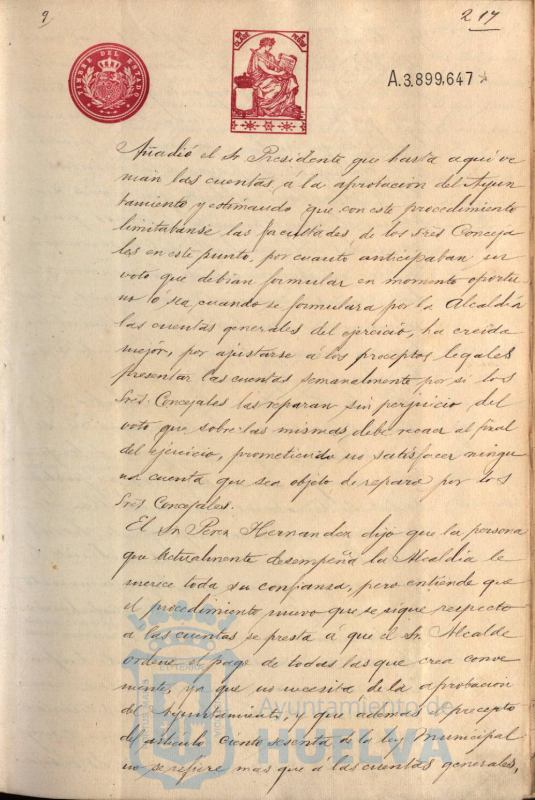 9
217
TIMBRE DEL ESTADO
A.3.899,647
Añadió el Sr Presidente que hasta aquí ve
nian las cuentas á la aprobacion del Ayun
tamiento y estimando que con este procedimiento
limitabanse las facultades de los Sres Conceja
les en este punto, por cuanto anticipaban un
voto que debian formular en momento oportu
no ó sea, cuando se formulara por la Alcaldía
las cuentas generales del ejercicio, ha creido
mejor, por ajustarse á los preceptos legales
presentar las cuentas semanalmente por si los
Sres Concejales las reparan sin perjuicio del
voto que sobre las mismas debe recaer al final
del ejercicio, prometiendo no satisfacer ningu
na cuenta que sea objeto de reparo por los
Sres Concejales.
El Sr Perez Hernandez dijo que la persona
que actualmente desempeña la Alcaldia le
merece toda su confianza, pero entiende que
el procedimiento nuevo que se sigue respecto
a las cuentas se presta á que el Sr. Alcalde
ordene el pago de todas las que crea conve
niente, ya que no necesita de la aprobacion
del Ayuntamiento, y que además el precepto
del artículo ciento sesenta de la ley municipal
no se refiere mas que á las cuentas generales,
Ayuntamiento de
HUELVA